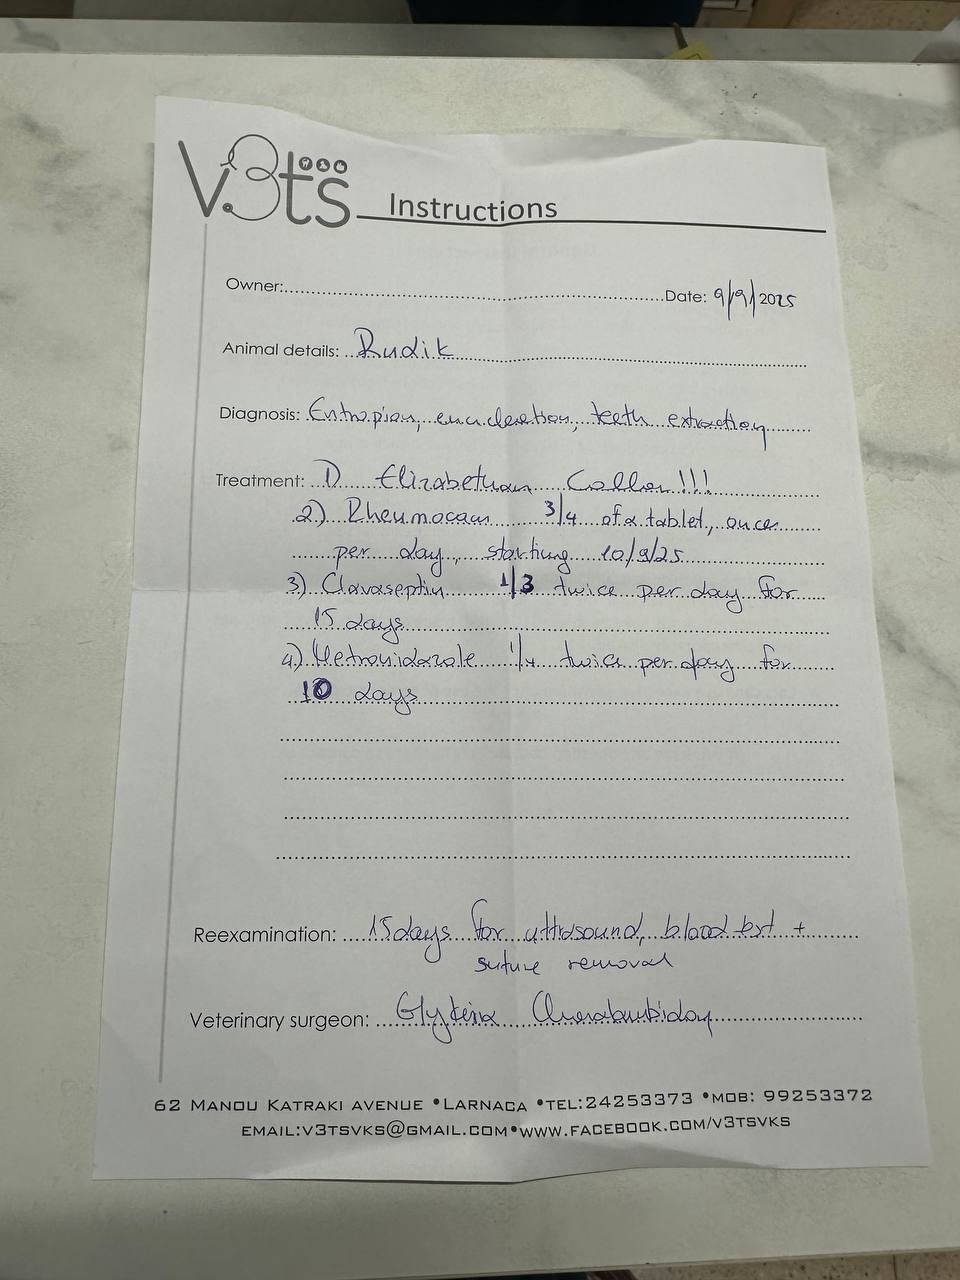 V3ts Instructions
Owner: Date: 9/9/2025
Animal details: Rudik
Diagnosis: Entropion, enucleation, teeth extraction
Treatment: 1) Elizabethan Collar!!!
2) Rheumocam 3/4 of a tablet, once
per day, starting 10/9/25
3) Clavaseptin 1/3 twice per day for
15 days
4) Metronidazole 1/4 twice per day for
10 days
Reexamination: 15 days for ultrasound, blood test +
suture removal
Veterinary surgeon:
62 MANOU KATRAKI AVENUE •LARNACA •TEL:24253373 •MOB: 99253372
EMAIL:V3TSVKS@GMAIL.COM•WWW.FACEBOOK.COM/V3TSVKS